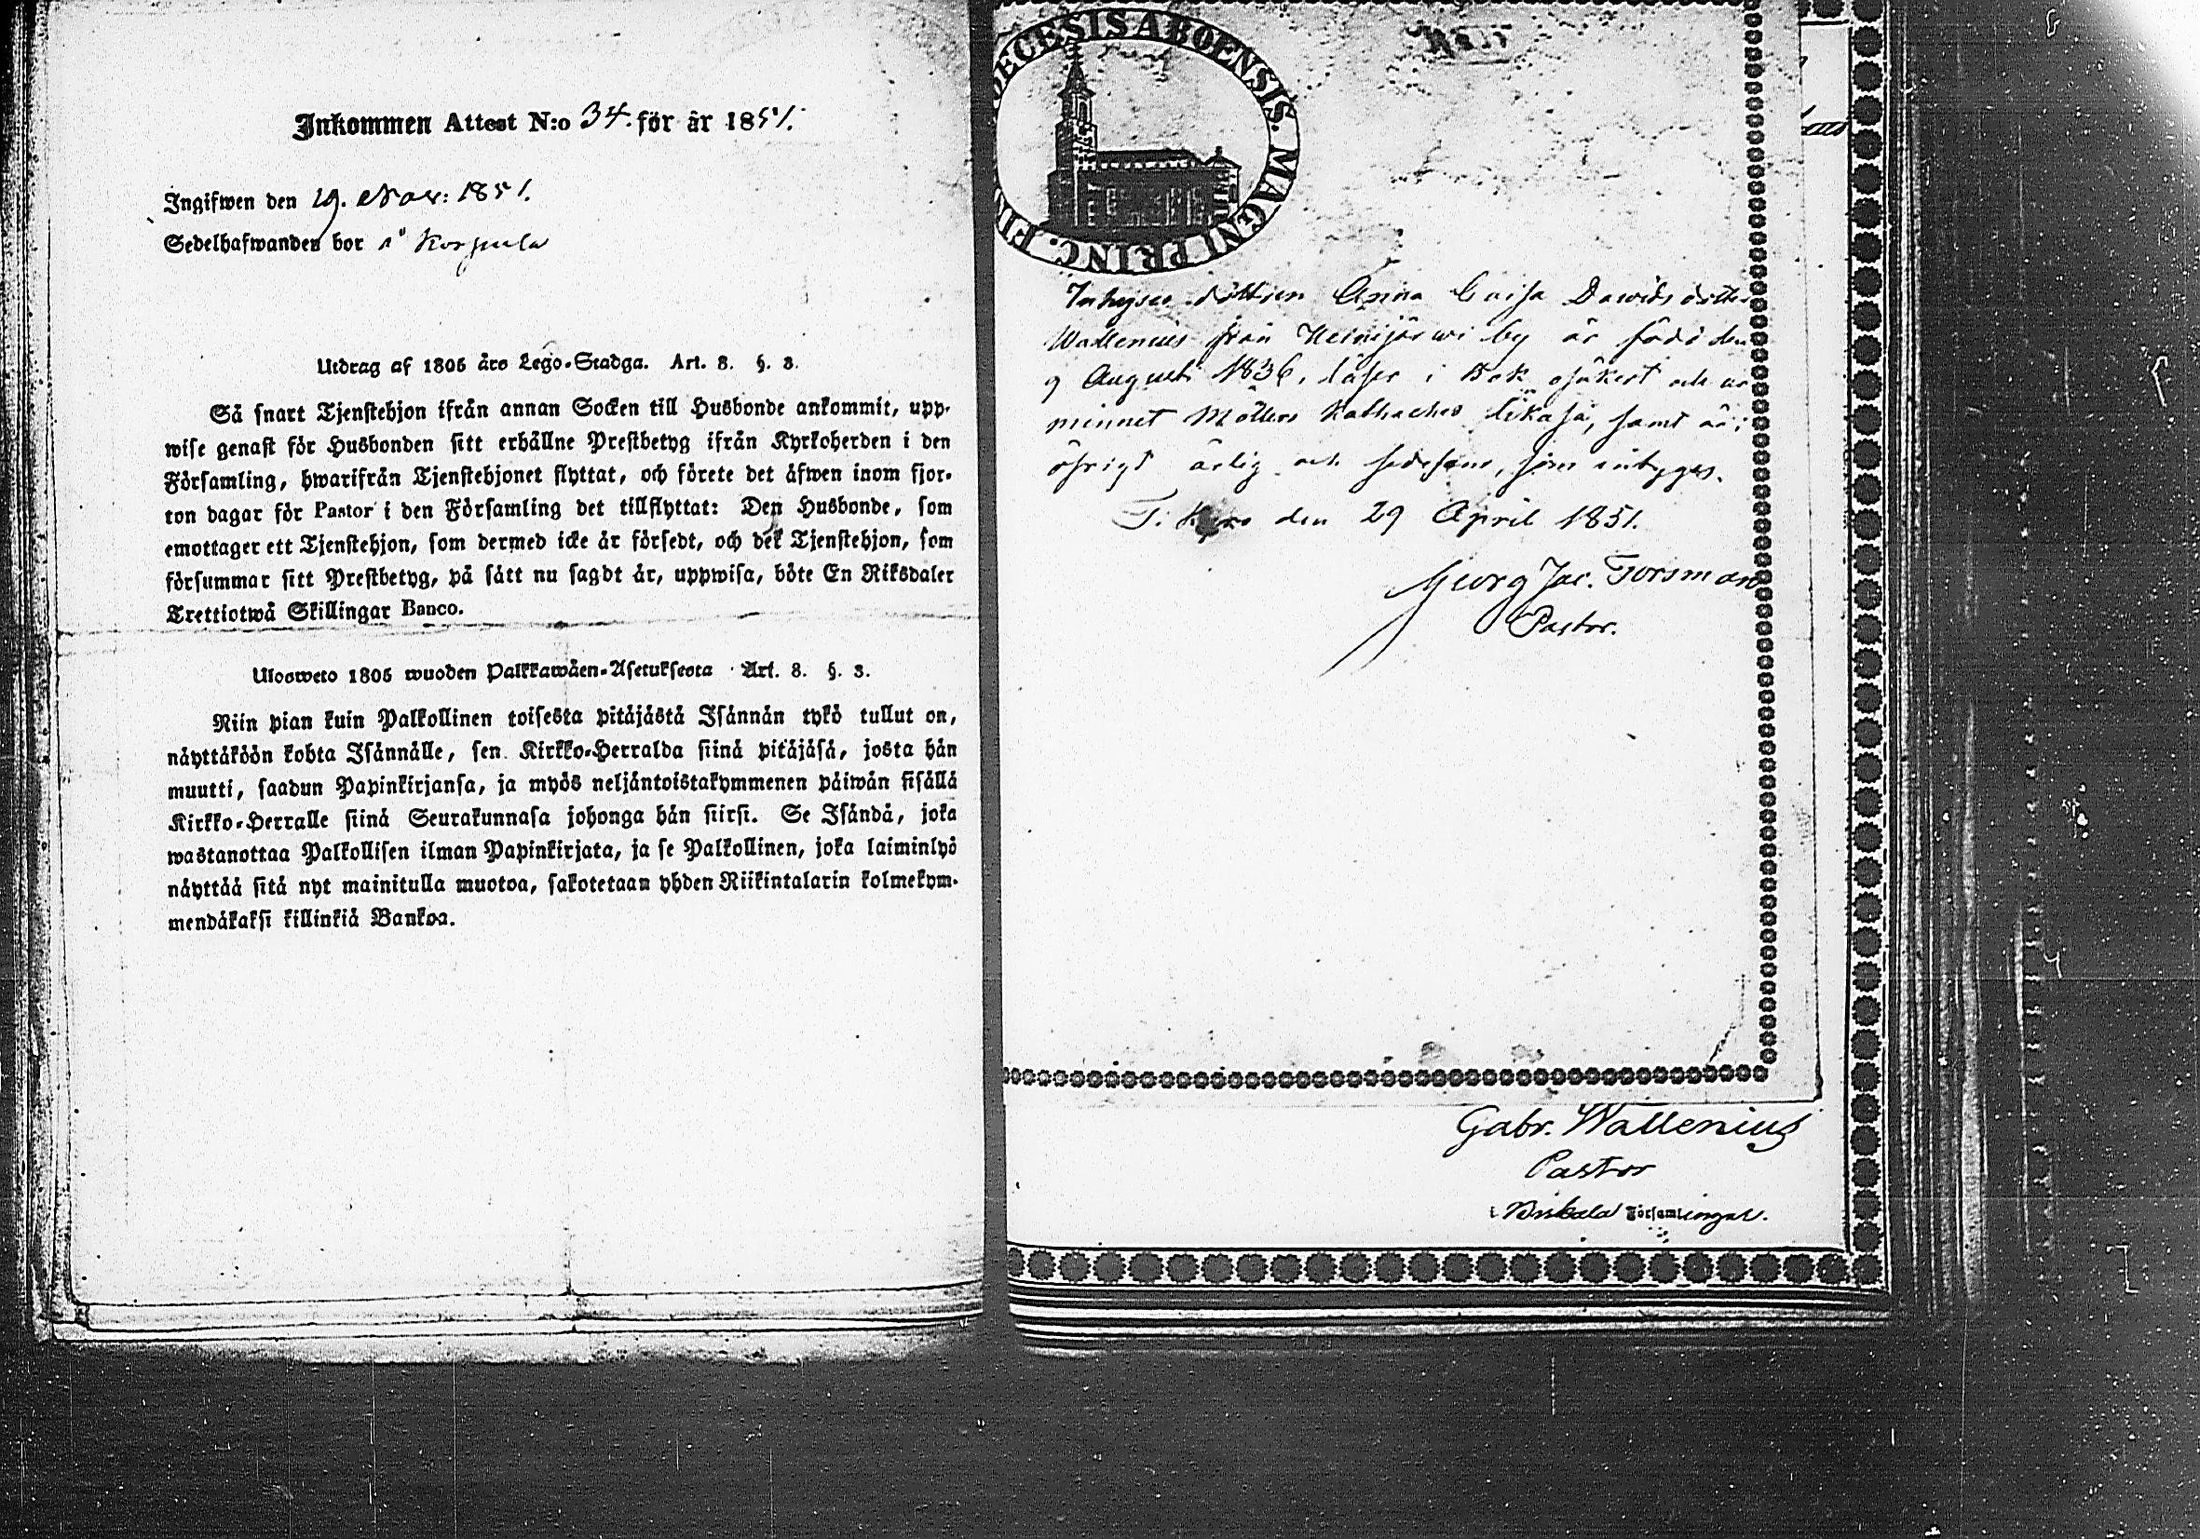 Inkommen Attest N:o 34. för år 1851.
Ingifwen den 19. Nov: 1851.
Sedelhafwanden bor i Korpula
Utdrag af 1805 års Lego-Stadga. Art. 8. §. 3.
Så snart Tjenstehjon ifrån annan Socken till Husbonde ankommit, upp-
wise genast för Husbonden sitt erhållne Prestbetyg ifrån Kyrkoherden i den
Församling, hwarifrån Tjenstehjonet flyttat, och förete det äfwen inom fjor-
ton dagar för Pastor i den Församling det tillflyttat: Den Husbonde, som
emottager ett Tjenstehjon, som dermed icke är försedt, och det Tjenstehjon, som
försummar sitt Prestbetyg, på sätt nu sagdt är, uppwisa, böte En Riksdaler
Trettiotwå Skillingar Banco.
Ulosweto 1805 wuoden Palkkawäen-Asetuksesta Art. 8. §. 3.
Niin pian kuin Palkollinen toisesta pitäjästä Isännän tykö tullut on,
näyttäköön kohta Isännälle, sen Kirkko-Herralda siinä pitäjäsä, josta hän
muutti, saadun Papinkirjansa, ja myös neljäntoistakymmenen päiwän sisällä
Kirkko-Herralle siinä Seurakunnasa johonga hän siirsi. Se Isändä, joka
wastanottaa Palkollisen ilman Papinkirjata, ja se Palkollinen, joka laiminlyö
näyttää sitä nyt mainitulla muotoa, sakotetaan yhden Riikintalarin kolmekym-
mendäkaksi killinkiä Bankoa.
DECESIS ABOENSIS. MAGNI PRINC. FIN
Inhyses dottren Anna Caisa Davidsdotter
Wallenius från Heinijärwi by är född den
9 Augusti 1836, läser i Bok osäkert och ur
minnet Möllers Kathaches likaså, samt är i
öfrigt ärlig och sedesam, som intygas.
T. Kyro den 29 April 1851.
Georg Jac. Forsman
Pastor.
Gabr. Wallenius
Pastor
i Birkala Församlingar.